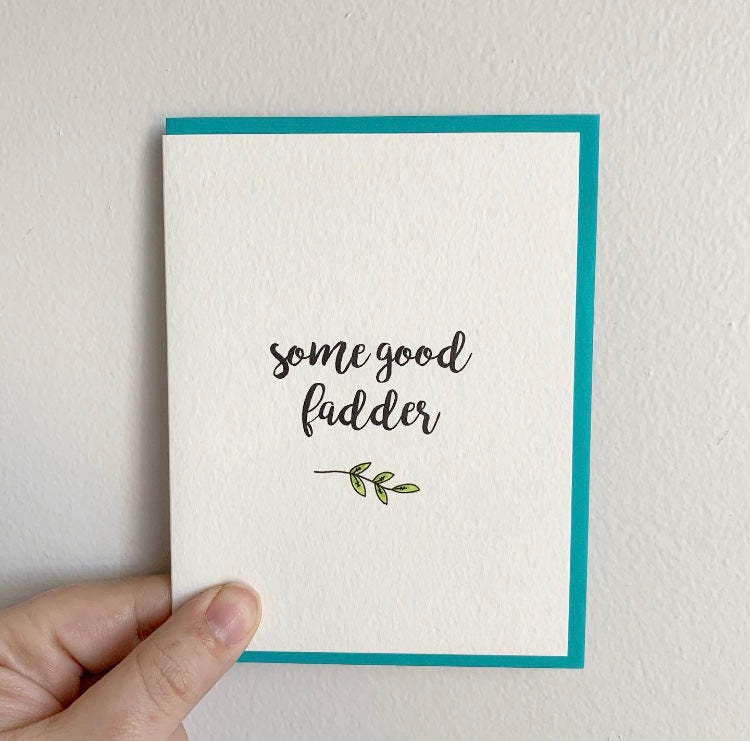 some good
fadder